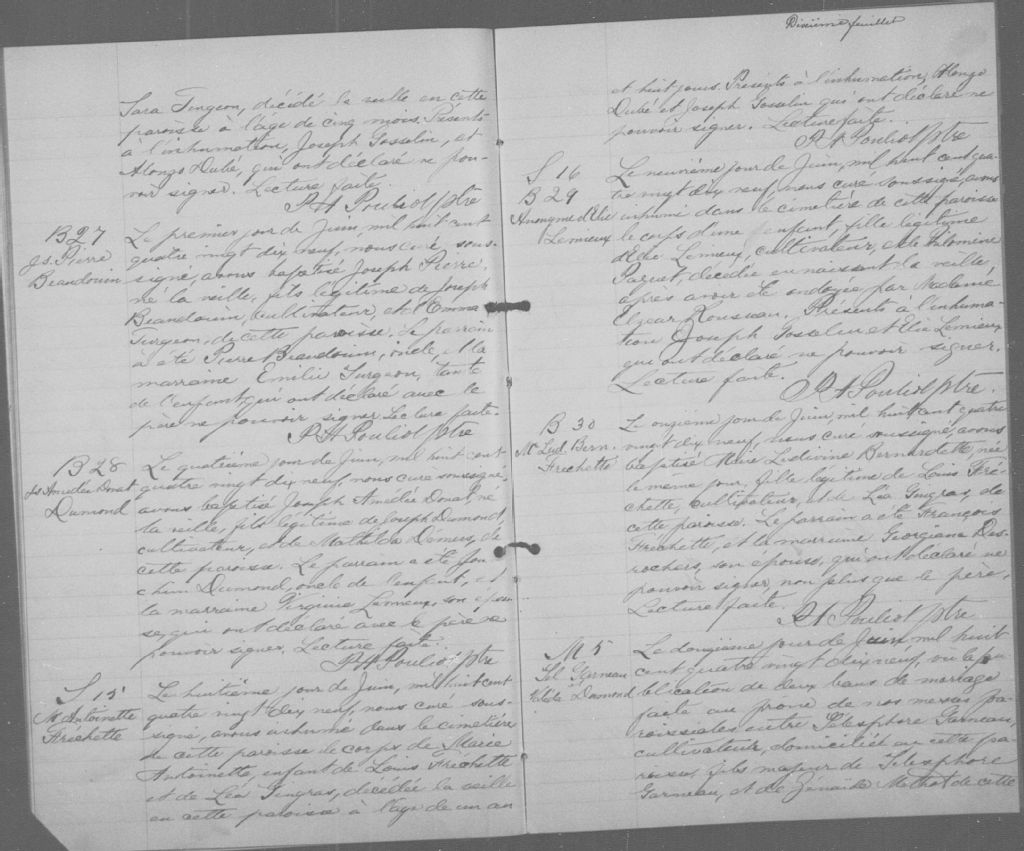 Dixième feuillet
Sara Turgeon, décédé la veille en cette
paroisse à l'âge de cinq mois. Présents
à l'inhumation, Joseph Gosselin, et
Alonzo Dubé, qui ont déclaré ne pou-
voir signer. Lecture faite.
P.H. Pouliot Ptre
B 27
Js. Pierre
Beaudouin
Le premier jour de Juin, mil huit cent
quatre vingt dix neuf, nous curé sous-
signé, avons baptisé Joseph Pierre,
né la veille, fils légitime de Joseph
Beaudouin, cultivateur, et d'Emma
Turgeon, de cette paroisse. Le parrain
a été Pierre Beaudouin, oncle, et la
marraine Emilie Turgeon, tante
de l'enfant, qui ont déclaré avec le
père ne pouvoir signer. Lecture faite.
P.H. Pouliot Ptre
B 28
Js Amedée Donat
Dumond
Le quatrième jour de Juin, mil huit cent
quatre vingt dix neuf, nous curé soussigné,
avons baptisé Joseph Amedée Donat, né
la veille, fils légitime de Joseph Dumond,
cultivateur, et de Mathilda Demers, de
cette paroisse. Le parrain a été Joa-
chim Dumond, oncle de l'enfant, et
la marraine Virginie Lemieux, son épou-
se, qui ont déclaré avec le père ne
pouvoir signer. Lecture faite.
P.H. Pouliot Ptre
S 15
M. Antoinette
Fréchette
Le huitième jour de Juin, mil huit cent
quatre vingt dix neuf, nous curé sous-
signé, avons inhumé dans le cimetière
de cette paroisse le corps de Marie
Antoinette, enfant de Louis Fréchette
et de Léa Gingras, décédée la veille
en cette paroisse à l'âge de un an
et huit jours. Présents à l'inhumation, Alonzo
Dubé et Joseph Gosselin qui ont déclaré ne
pouvoir signer. Lecture faite.
P.H. Pouliot Ptre
S 16
B 29
Anonyme d'Elie
Lemieux
Le neuvième jour de Juin, mil huit cent qua-
tre vingt dix neuf, nous curé soussigné, avons
inhumé dans le cimetière de cette paroisse
le corps d'une enfant, fille légitime
d'Elie Lemieux, cultivateur, et de Philomène
Paquet, décédée en naissant la veille,
après avoir été ondoyée par Madame
Elzear Rousseau. Présents à l'inhuma-
tion Joseph Gosselin et Elie Lemieux
qui ont déclaré ne pouvoir signer.
Lecture faite.
P.H. Pouliot Ptre.
B 30
M. Led. Bern.
Fréchette
Le onzième jour de Juin, mil huit cent quatre
vingt dix neuf, nous curé soussigné, avons
baptisé Marie Ledivine Bernardette, née
le même jour, fille légitime de Louis Fré-
chette, cultivateur, et de Léa Gingras, de
cette paroisse. Le parrain a été François
Fréchette, et la marraine Georgiana Des-
rochers, son épouse, qui ont déclaré ne
pouvoir signer, non plus que le père.
Lecture faite.
P.H. Pouliot Ptre
M 5
Tel. Garneau
Dumond
Le douzième jour de Juin, mil huit
cent quatre vingt dix neuf, vu la pu
blication de deux bans de mariage
faite au prone de nos messes pa-
roissiales entre Télesphore Garneau,
cultivateur, domicilié en cette pa-
roisse, fils majeur de Télesphore
Garneau, et de Zénaïde Mathot de cette